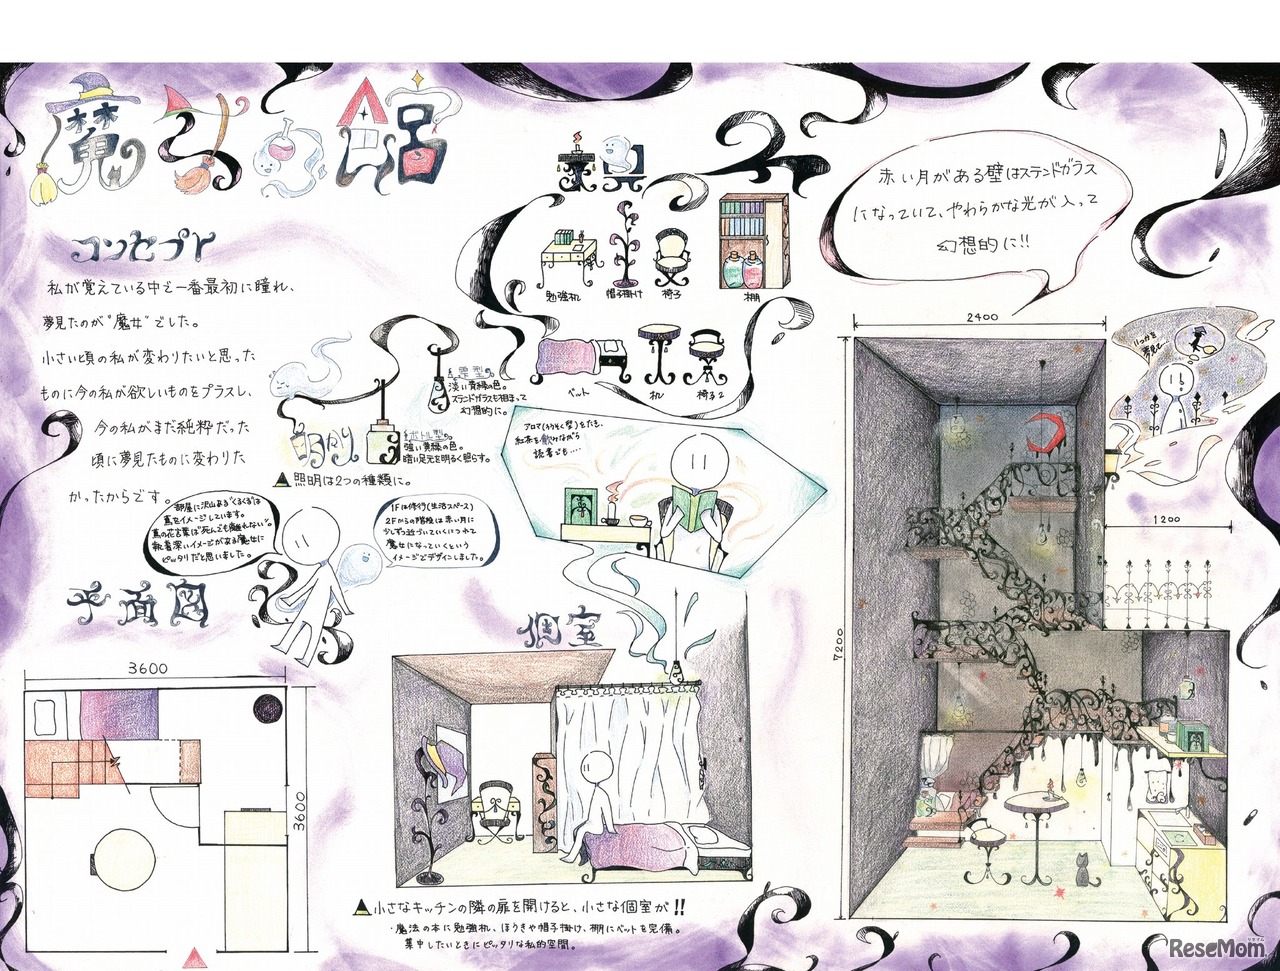 魔女の館
コンセプト
私が覚えている中で一番最初に憧れ、
夢見たのが"魔女"でした。
小さい頃の私が変わりたいと思った
ものに今の私が欲しいものをプラスし、
今の私がまだ純粋だった
頃に夢見たものに変わりた
かったからです。
家具
勉強机
帽子掛け
椅子
棚
ベット
机
椅子2
赤い月がある壁はステンドガラス
になっていて、やわらかな光が入って
幻想的に!!
明かり
雫型。
淡い黄緑の色。
ステンドガラスも相まって
幻想的に。
ボトル型。
強い黄緑の色。
暗い足元を明るく照らす。
照明は2つの種類に。
アロマ(ろうそく型)をたき、
紅茶を飲みながら
読書でも....
部屋に沢山ある"くるくる"は
蔦をイメージしています。
蔦の花言葉は"死んでも離れない"。
執着深いイメージがある魔女に
ピッタリだと思いました。
1Fは修行(生活スペース)
2Fからの階段は赤い月に
少しずつ近づいていくにつれて
魔女になっていくという
イメージでデザインしました。
いつかを
夢見て
平面図
3600
3600
個室
小さなキッチンの隣の扉を開けると、小さな個室が!!
・魔法の本に勉強机、ほうきや帽子掛け、棚にベットを完備。
集中したいときにピッタリな私的空間。
2400
1200
7200
ReseMom
リセマム